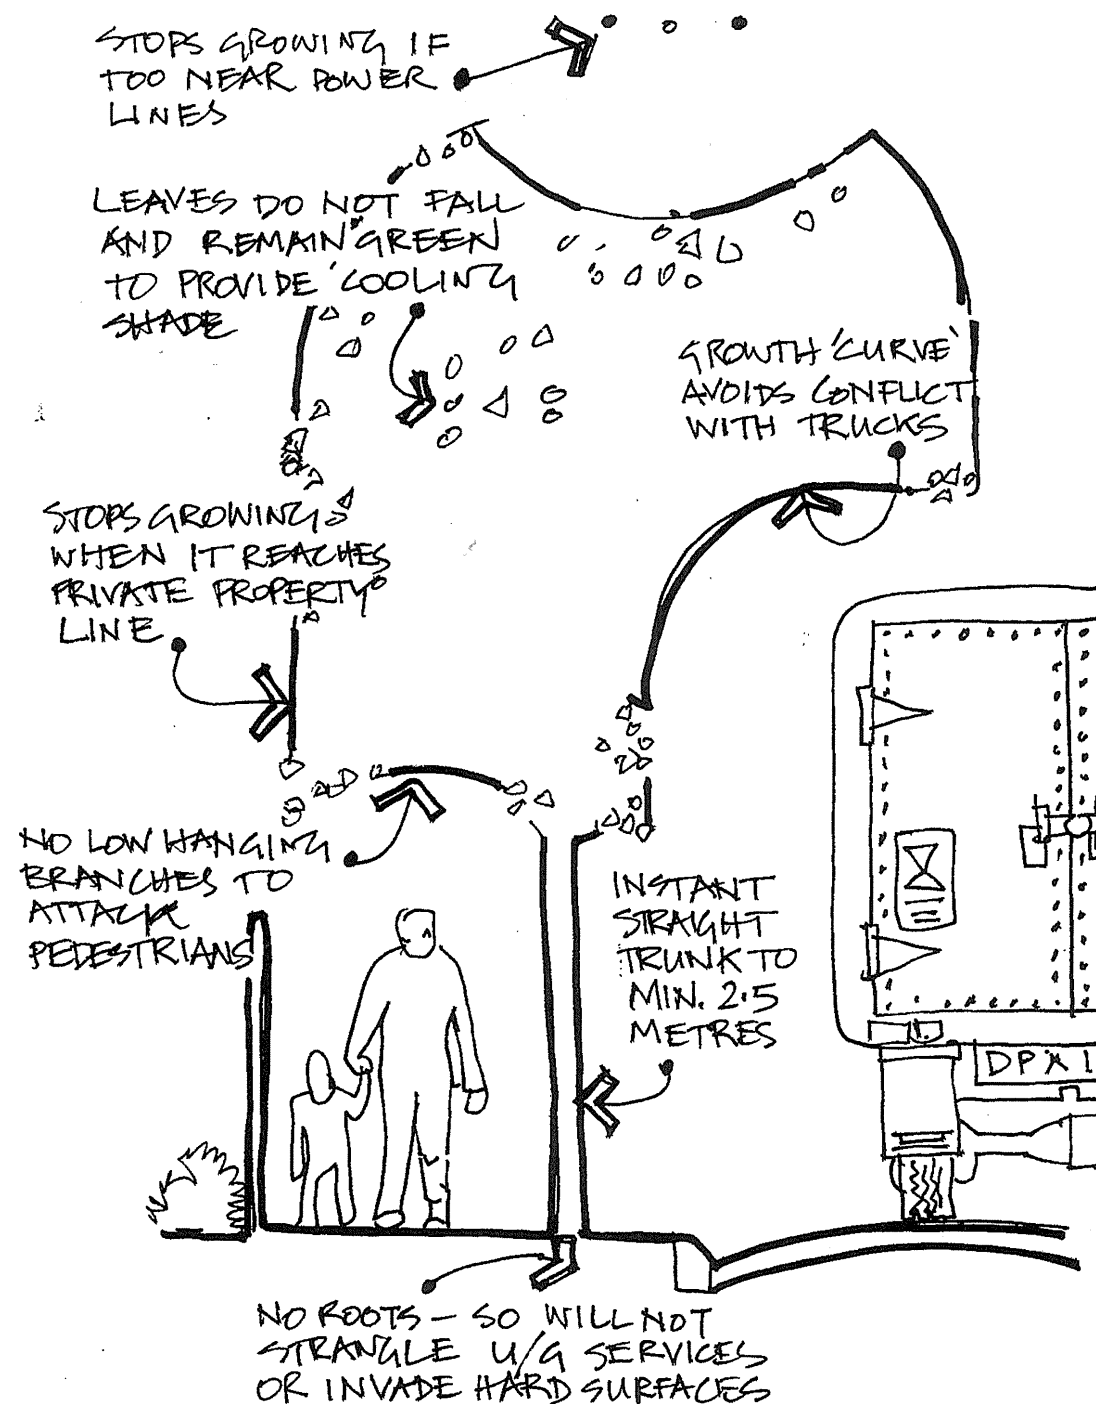 STOPS GROWING IF
TOO NEAR POWER
LINES
LEAVES DO NOT FALL
AND REMAIN "GREEN
TO PROVIDE 'COOLING
SHADE
GROWTH 'CURVE'
AVOIDS CONFLICT
WITH TRUCKS
STOPS GROWING
WHEN IT REACHES
PRIVATE PROPERTY
LINE
NO LOW HANGING
BRANCHES TO
ATTACK
PEDESTRIANS
INSTANT
STRAIGHT
TRUNK TO
MIN. 2.5
METRES
DPA1
NO ROOTS - SO WILL NOT
STRANGLE U/G SERVICES
OR INVADE HARD SURFACES